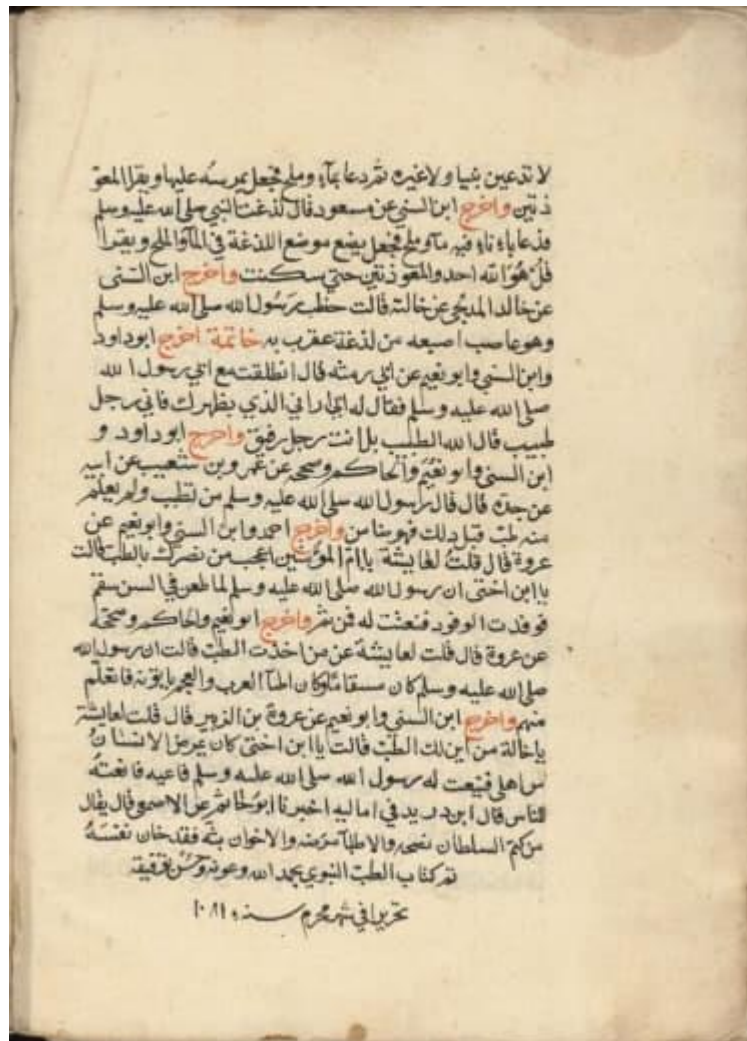 لا تدعين نبيا ولا غيره ثم دعا بمآء وملح فجعل يمرسه عليها ويقرا المعو
ذتين واخرج ابن السني عن مسعود قال لذغت النبي صلي الله عليه وسلم
فدعا باناء فيه مآء وملح فجعل يضع موضع اللذغة في المآء والملح ويقرا
قل هو الله احد والمعوذتين حتي سكنت واخرج ابن السني
عن خالد المدلجي عن خالته قالت خطب رسول الله صلي الله عليه وسلم
وهو عاصب اصبعه من لذغة عقرب به خاتمة اخرج ابو داود
وابن السني وابو نعيم عن ابي رمثه قال انطلقت مع ابي رسول الله
صلي الله عليه وسلم فقال له ابي ارني الذي بظهرك فاني رجل
طبيب قال الله الطبيب بل انت رجل رفيق واخرج ابو داود و
ابن السني وابو نعيم والحاكم وصححه عن عمرو بن شعيب عن ابيه
عن جده قال قال رسول الله صلي الله عليه وسلم من تطبب ولم يعلم
منه طب قبل ذلك فهو ضامن واخرج احمد وابن السني وابو نعيم عن
عروة قال قلت لعايشة يا ام المؤمنين اعجب من بصرك بالطب قالت
يا ابن اختي ان رسول الله صلي الله عليه وسلم لما طعن في السن سقم
فوفدت الوفود فنعتت له فمن ثم واخرج ابو نعيم والحاكم وصححه
عن عروة قال قلت لعايشة عن من اخذت الطب قالت ان رسول الله
صلي الله عليه وسلم كان مسقاما وكان اطبآ العرب والعجم ياتونه فاتعلم
منهم واخرج ابن السني وابو نعيم عن عروة بن الزبير قال قلت لعايشة
يا خالة من اين لك الطب قالت يا ابن اختي كان يمرض الانسان
من اهلي فينعت له رسول الله صلي الله عليه وسلم فاعيه فانعته
للناس قال ابن دريد في اماليه اخبرنا ابو حاتم عن الاصمعي قال يقال
من كتم السلطان نصحه والاطبآ مرضه والاخوان بثه فقد خان نفسه
تم كتاب الطب النبوي بحمد الله وعونه وحسن توفيقه
تحريرا في شهر محرم سنة ١٠٨١